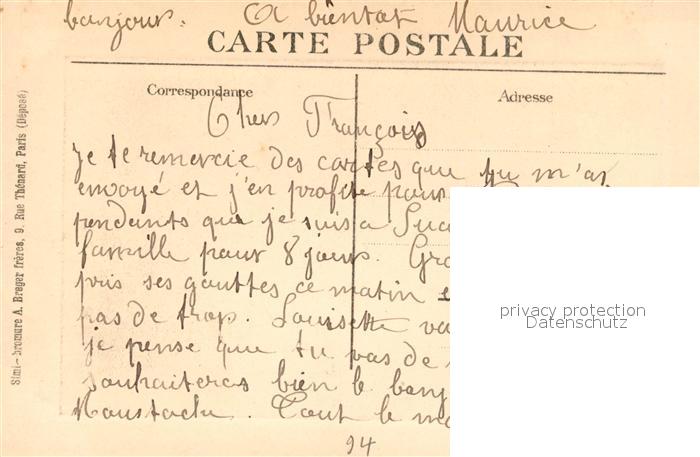 banjour. A bientat Maurice
CARTE POSTALE
Correspondance
Adresse
Cher François
Je te remercie des cartes que tu m'as
envoyé et j'en profite pour
pendants que je suis a
famille pour 8 jours.
pris ses gouttes ce matin
pas de trop. Louisette va
je pense que tu vas de
souhaiteras bien le
Moustache. Tout le
94
Simi-bromure A. Breger frères, 9, Rue Thénard, Paris (Déposé)
privacy protection
Datenschutz